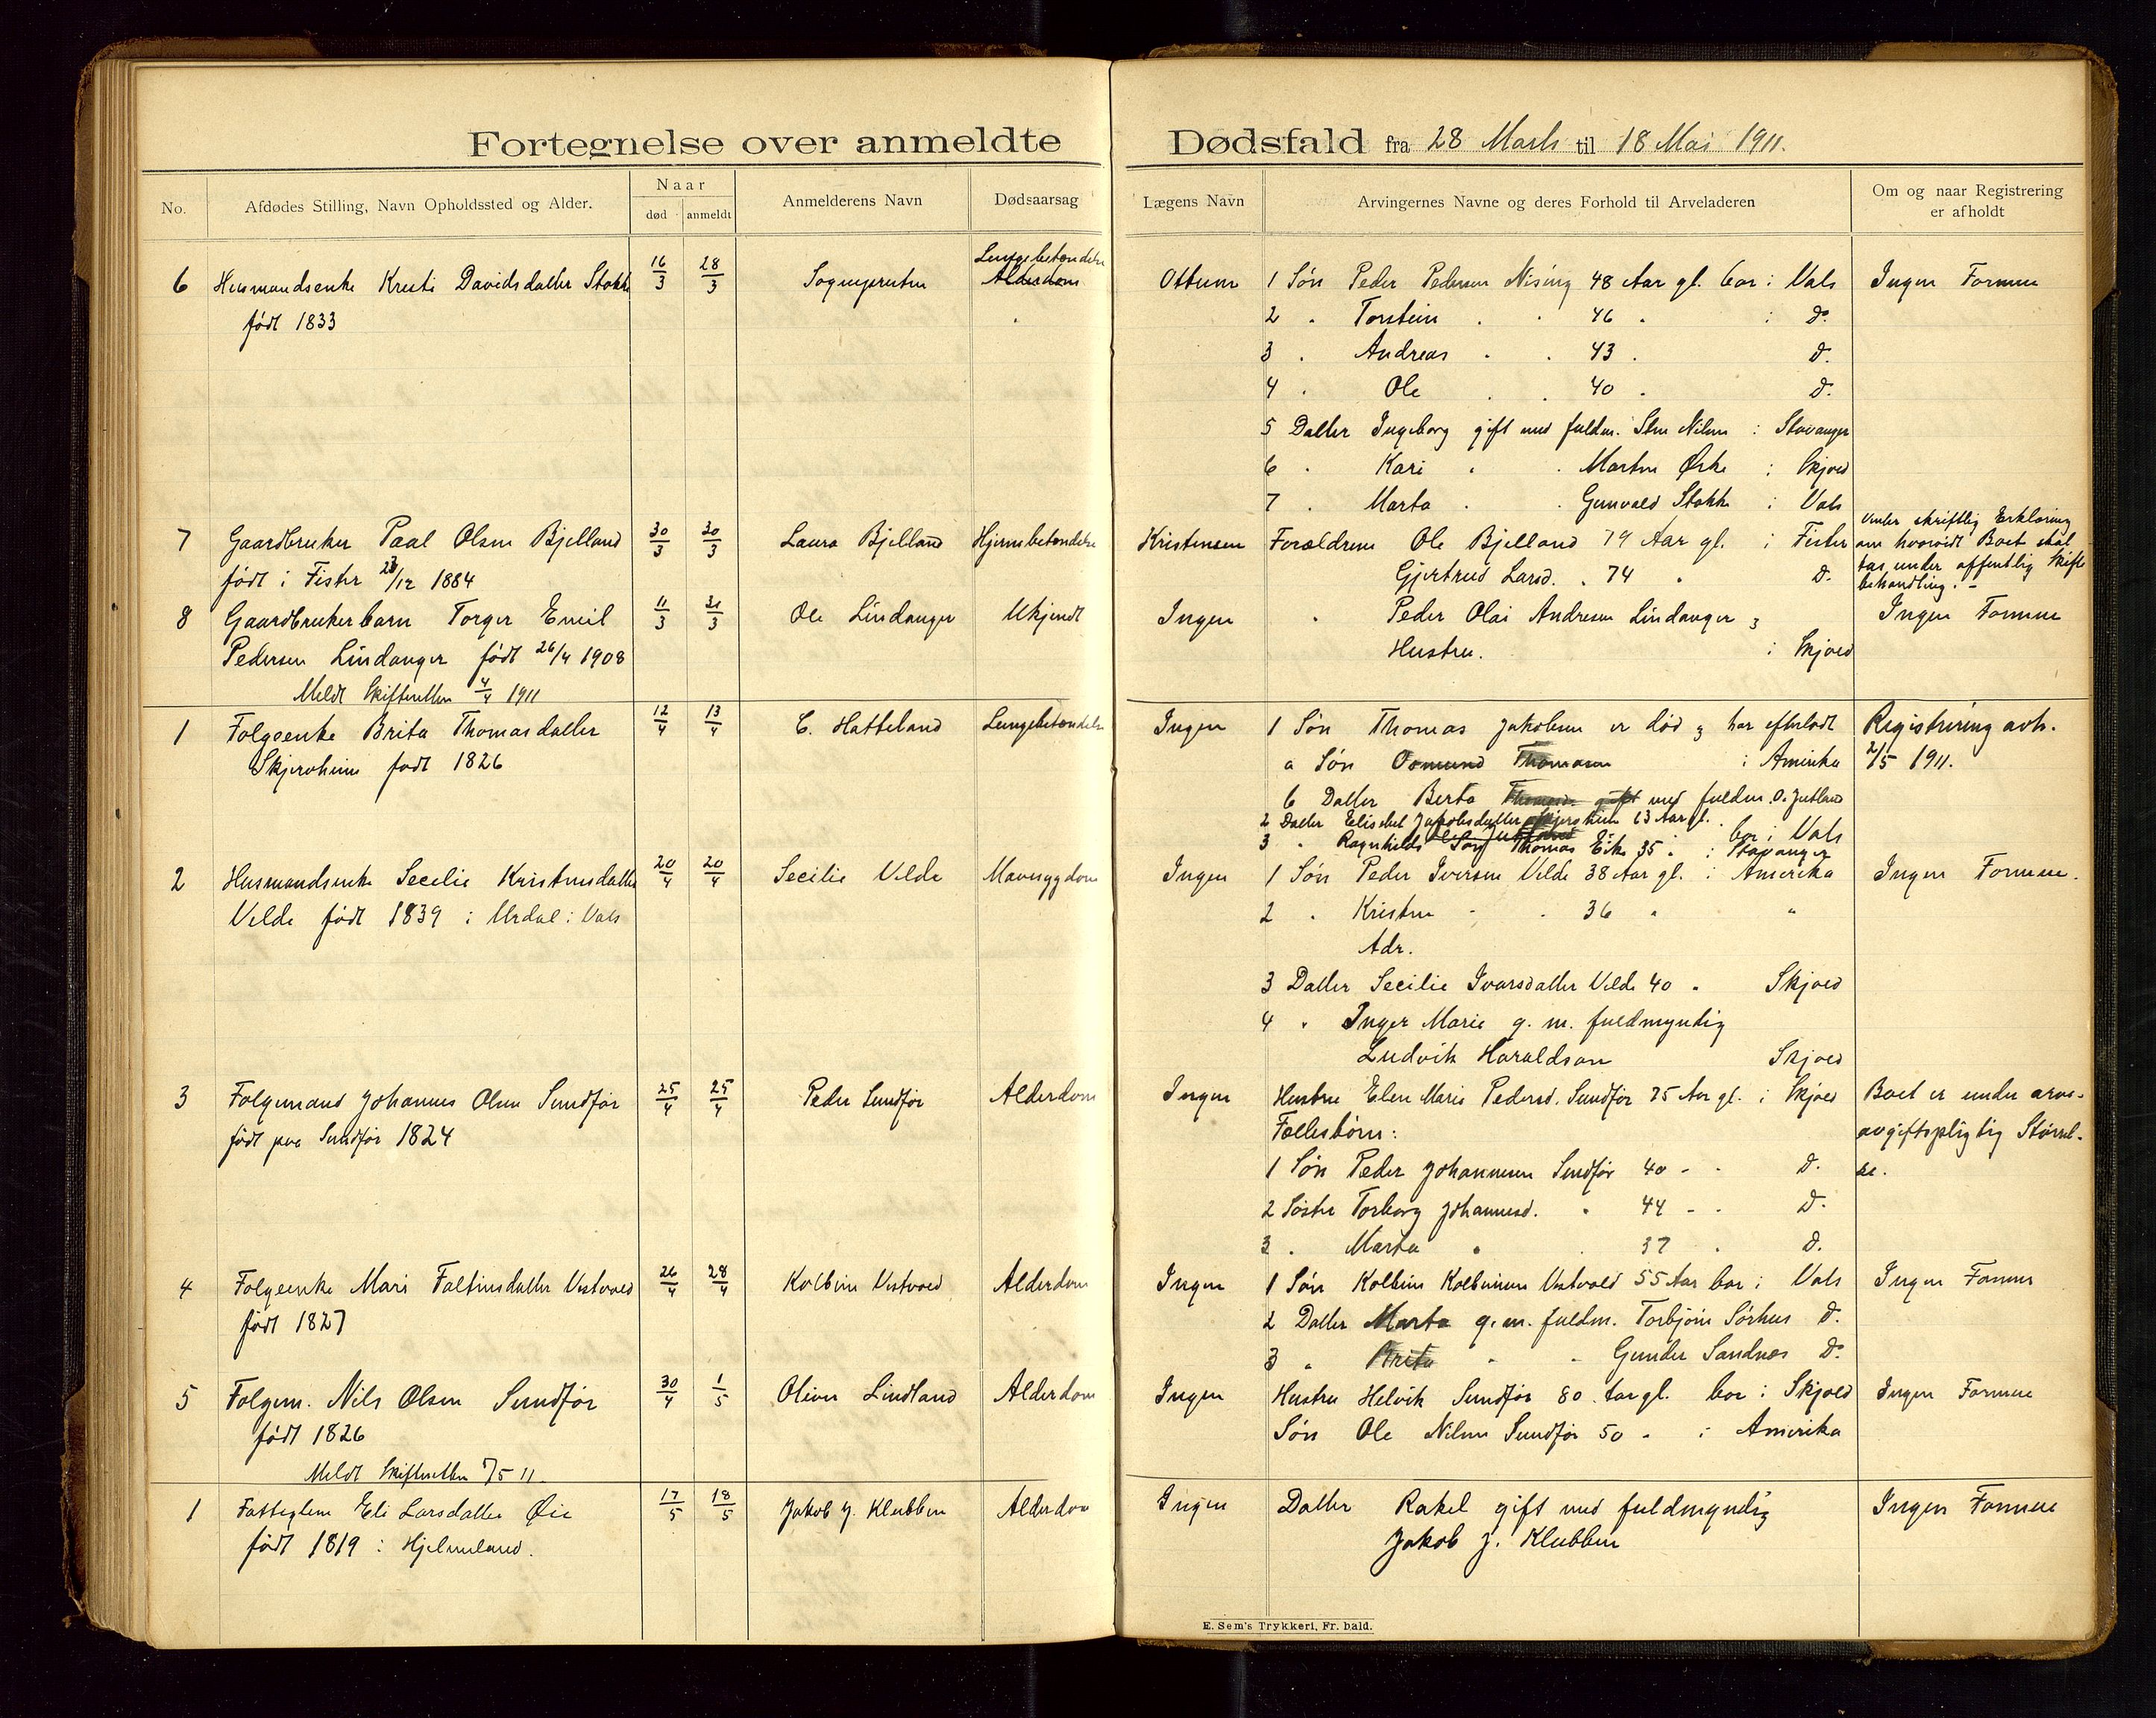 Fortegnelse over anmeldte Dødsfald fra 28 Marts til 18 Mai 1911.
No. Afdødes Stilling, Navn Opholdssted og Alder. Naar død anmeldt Anmelderens Navn Dødsaarsag Lægens Navn Arvingernes Navne og deres Forhold til Arveladeren Om og naar Registrering er afholdt
Lungebetændelse
6 Husmandsenke Kristi Davidsdatter Stokke 16/3 28/3 Sognepresten Alderdom Ottum 1 Søn Peder Pedersen Nising 48 Aar gl. bor i Vats Ingen Formue
født 1833 2 " Torstein " " 46 " i do.
3 " Andreas " " 43 " do.
4 " Ole " " 40 " do.
5 Datter Ingeborg gift med fuldm. Sten Nilsen i Stavanger
6 " Kari " " Marten Ørke i Skjold
7 " Marta " " Gunvald Stokke i Vats
7 Gaardbruker Paal Olsen Bjelland 30/3 30/3 Laura Bjelland Hjernebetændelse Kristensen Forældrene Ole Bjelland 79 Aar gl. i Fister
født i Fister 23/12 1884 Gjertrud Larsd. " 74 " do.
Under skriftlig Erklæring
om hvorvidt Boet skal
tas under offentlig Skifte
behandling. -
8 Gaardbrukerbarn Torger Emil 11/3 31/3 Ole Lindanger Ukjendt Ingen " Peder Olai Andresen Lindanger og Ingen Formue
Pedersen Lindanger født 26/4 1908 Hustru. i Skjold
Meldt Skifteretten 4/4 1911
1 Folgeenke Brita Thomasdatter 12/4 13/4 C. Hatteland Lungebetændelse Ingen 1 Søn Thomas Jakobsen er død og har efterladt Registrering avh.
Skjeroheim født 1826 a Søn Osmund Thomasen i Amerika 2/5 1911.
b Datter Berta Thomasd. gift med fuldm. O. Jutland
2 Datter Elisabet Jakobsdatter Skjeroheim 63 Aar gl. bor i Vats
3 " Ragnhilds Søn Thomas Eike 35 " i Stavanger
2 Husmandsenke Secelie Kristensdatter 20/4 20/4 Secilie Velde Mavesygdom Ingen 1 Søn Peder Iversen Velde 38 Aar gl. i Amerika Ingen Formue.
Velde født 1839 i Urdal i Vats 2 " Kristen " " 36 " "
Adr.
3 Datter Secilie Ivarsdatter Velde 40 " Skjold
4 " Inger Marie g. m. fuldmyndig
Ludvik Haraldson Skjold
3 Folgemand Johannes Olsen Sundfør 25/4 25/4 Peder Sundfør Alderdom Ingen Hustru Elen Marie Pedersd. Sundfør 75 Aar gl. i Skjold Boet er under arve-
født paa Sundfør 1824 Fællesbørn: avgiftspligtig Størrel-
1 Søn Peder Johannesen Sundfør 40 " " do. se.
2 Søster Torborg Johannesd. " 44 " " do.
3 " Marta " " 37 " do.
4 Folgeenke Mari Faltinsdatter Vestvold 26/4 28/4 Kolbein Vestvold Alderdom Ingen 1 Søn Kolbein Kolbeinsen Vestvold 55 Aar bor i Vats Ingen Formue
født 1827 2 Datter Marta g. m. fuldm. Torbjørn Sørhus do.
3 " Brita " " Gunder Sandnes do.
5 Folgem. Nils Olsen Sundfør 30/4 1/5 Oliver Lindland Alderdom Ingen Hustru Helvik Sundfør 80 Aar gl. bor i Skjold Ingen Formue
født 1826 Søn Ole Nilsen Sundfør 50 " i Amerika
Meldt Skifteretten 7/5 11
1 Fattiglem Eli Larsdatter Øie 17/5 18/5 Jakob J. Klubben Alderdom Ingen Datter Rakel gift med fuldmyndig Ingen Formue
født 1819 i Hjelmeland. Jakob J. Klubben
E. Sem's Trykkeri, Fr. hald.